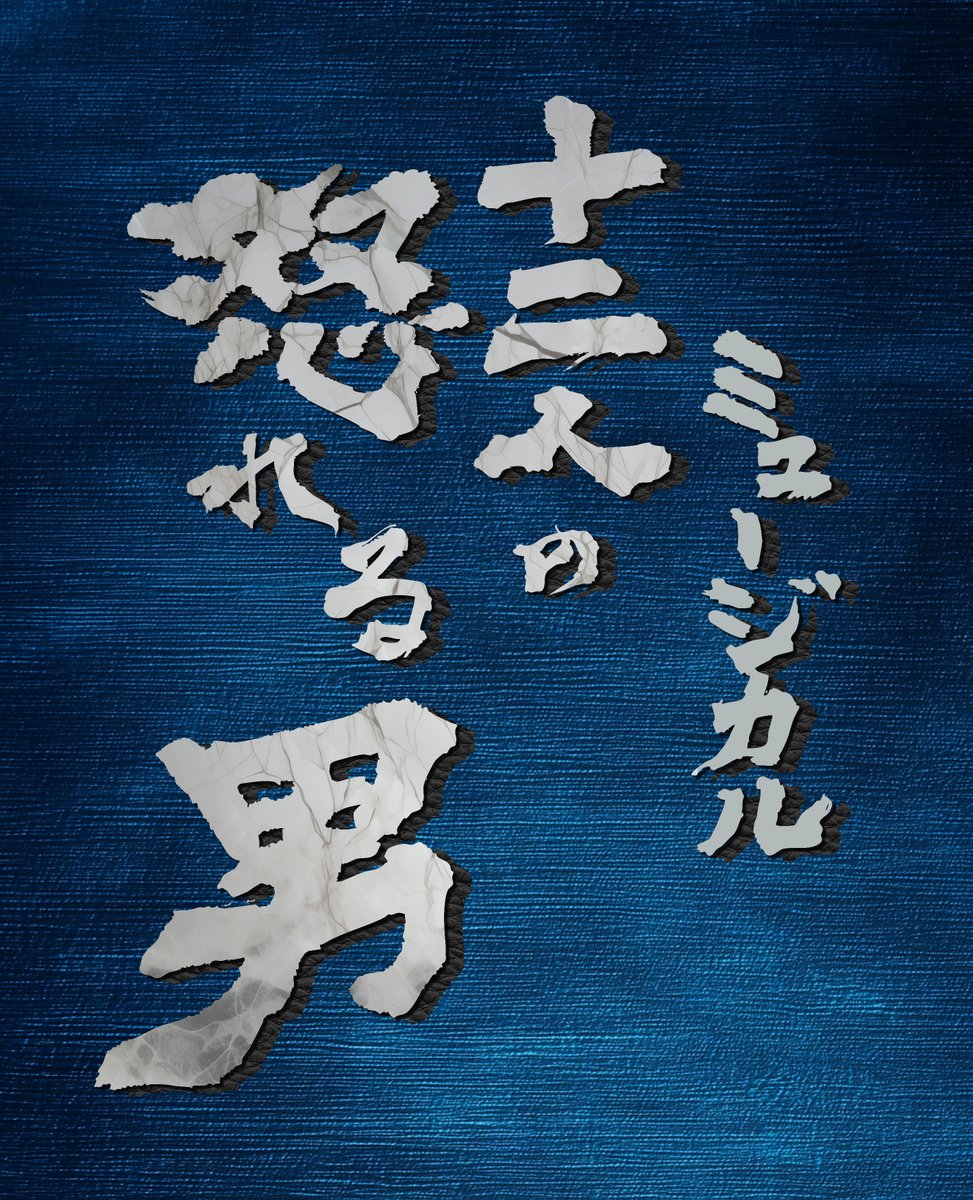 ミュージカル
十二人の
怒れる男